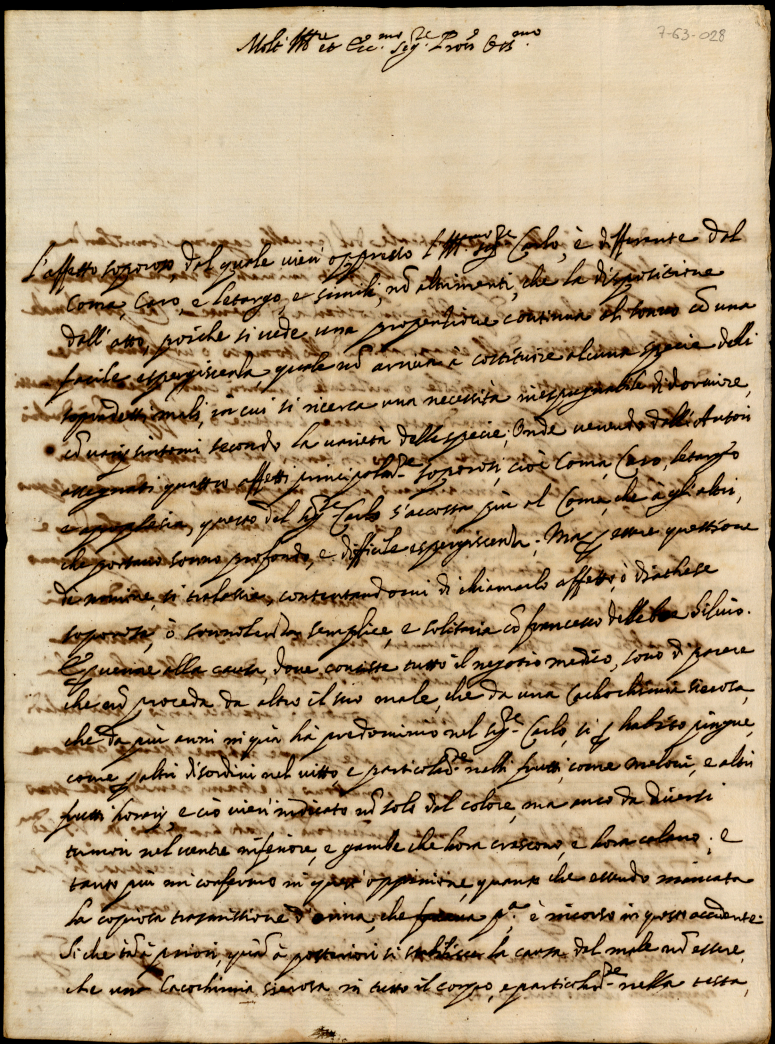 7-63-028
Molt' Ill.re et Ecc.mo Sig.re Pron Oss.mo
L'affetto soporoso dal quale vien oppresso l'Ill.mo Sig.re Carlo, è differente dal
Coma, Caro, e letargo, e simili, nõ altrimenti, che la dispositione
dall'atto, poiche si vede una propensione continua al sonno cõ una
facile espergiscenda, quale nõ arriva a costituire alcuna specie delli
sopradetti mali, in cui si ricerca una necessità inespugnabile di dormire,
cõ varij sintomi secondo la varietà delle specie; Onde venendo dalli Autori
assegnati quattro affetti principalm.te soporosi, cioè Coma, Caro, letargo
e apoplesia, questo del Sig.re Carlo s'accosta più al Coma, che à gli altri,
che portano sonno profondo, e difficile espergiscenda; Ma p essere questione
di nomine, si tralascia, contentandomi di chiamarlo affetto, ò diathese
soporosa, ò sonnolenza semplice, e solitaria cõ francesco delleboe Silvio.
E p venire alla causa, dove consiste tutto il negotio medico, sono di parere
che nõ proceda da altro il suo male, che da una Cachochimia sierosa,
che da più anni in quà hà predominio nel Sig.re Carlo, si p habito pingue,
come p altri disordini nel vitto e particolarm.te nelli frutti, come meloni, e altri
frutti horarij e ciò vien indicato nõ solo dal colore, ma anco da diversi
tumori nel ventre inferiore, e gambe che hora crescono, e hora calano; e
tanto più mi confermo in quest'oppinione, quanto che essendo mancata
la copiosa trasmissione d'orina, che p.a è incorso in questo accidente.
Si che tãto à priori, quãto à posteriori si stabilisce la causa del male nõ essere,
che una Cacochimia sierosa in tutto il corpo, e particolarm.te nella testa,